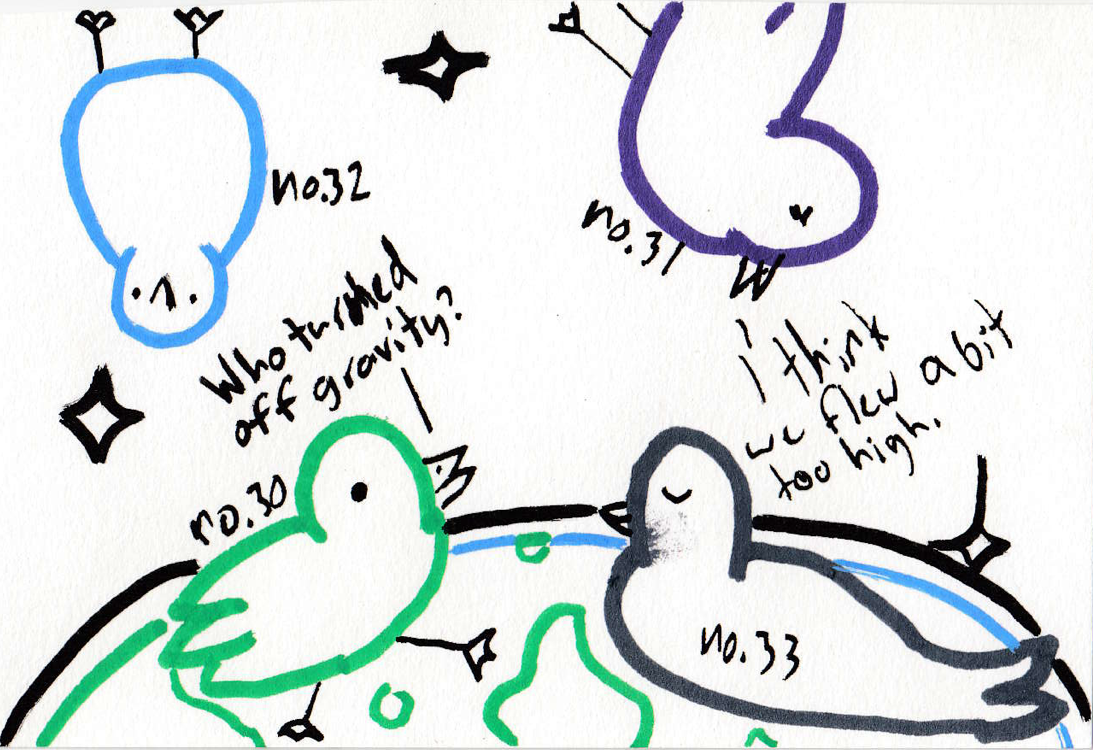 no.32
no.31
Who turned
off gravity?
I think
we flew a bit
too high.
no.30
no.33